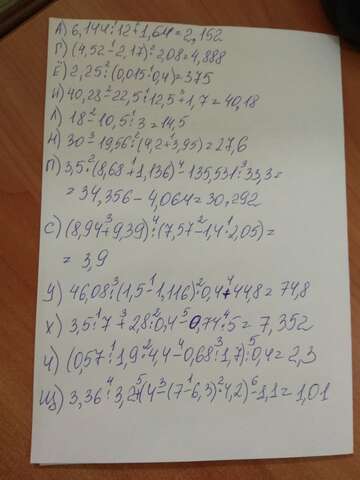 А) 6,144:¹12+²1,64=2,152
Г) (4,52-¹2,17)·²2,08=4,888
Ё) 2,25:²(0,015·¹0,4)=375
И) 40,28-²22,5:¹12,5+³1,7=40,18
Л) 18-²10,5:¹3=14,5
Н) 30-³19,56:²(4,2+¹3,95)=27,6
П) 3,5·²(8,68+¹1,136)-⁴135,531:³33,3=
=34,356-4,064=30,292
С) (8,94+³9,39):⁴(7,57-²1,4·¹2,05)=
=3,9
У) 46,08:³(1,5-¹1,116)·²0,4+⁴44,8=74,8
Х) 3,5:¹7+³2,8:²0,4-⁵0,74:⁴5=7,352
Ч) (0,57:¹1,9·²4,4-⁴0,68:³1,7):⁵0,4=2,3
Щ) 3,36:⁴3,2+⁵(4-³(7-¹6,3)·²4,2)-⁶1,1=1,01